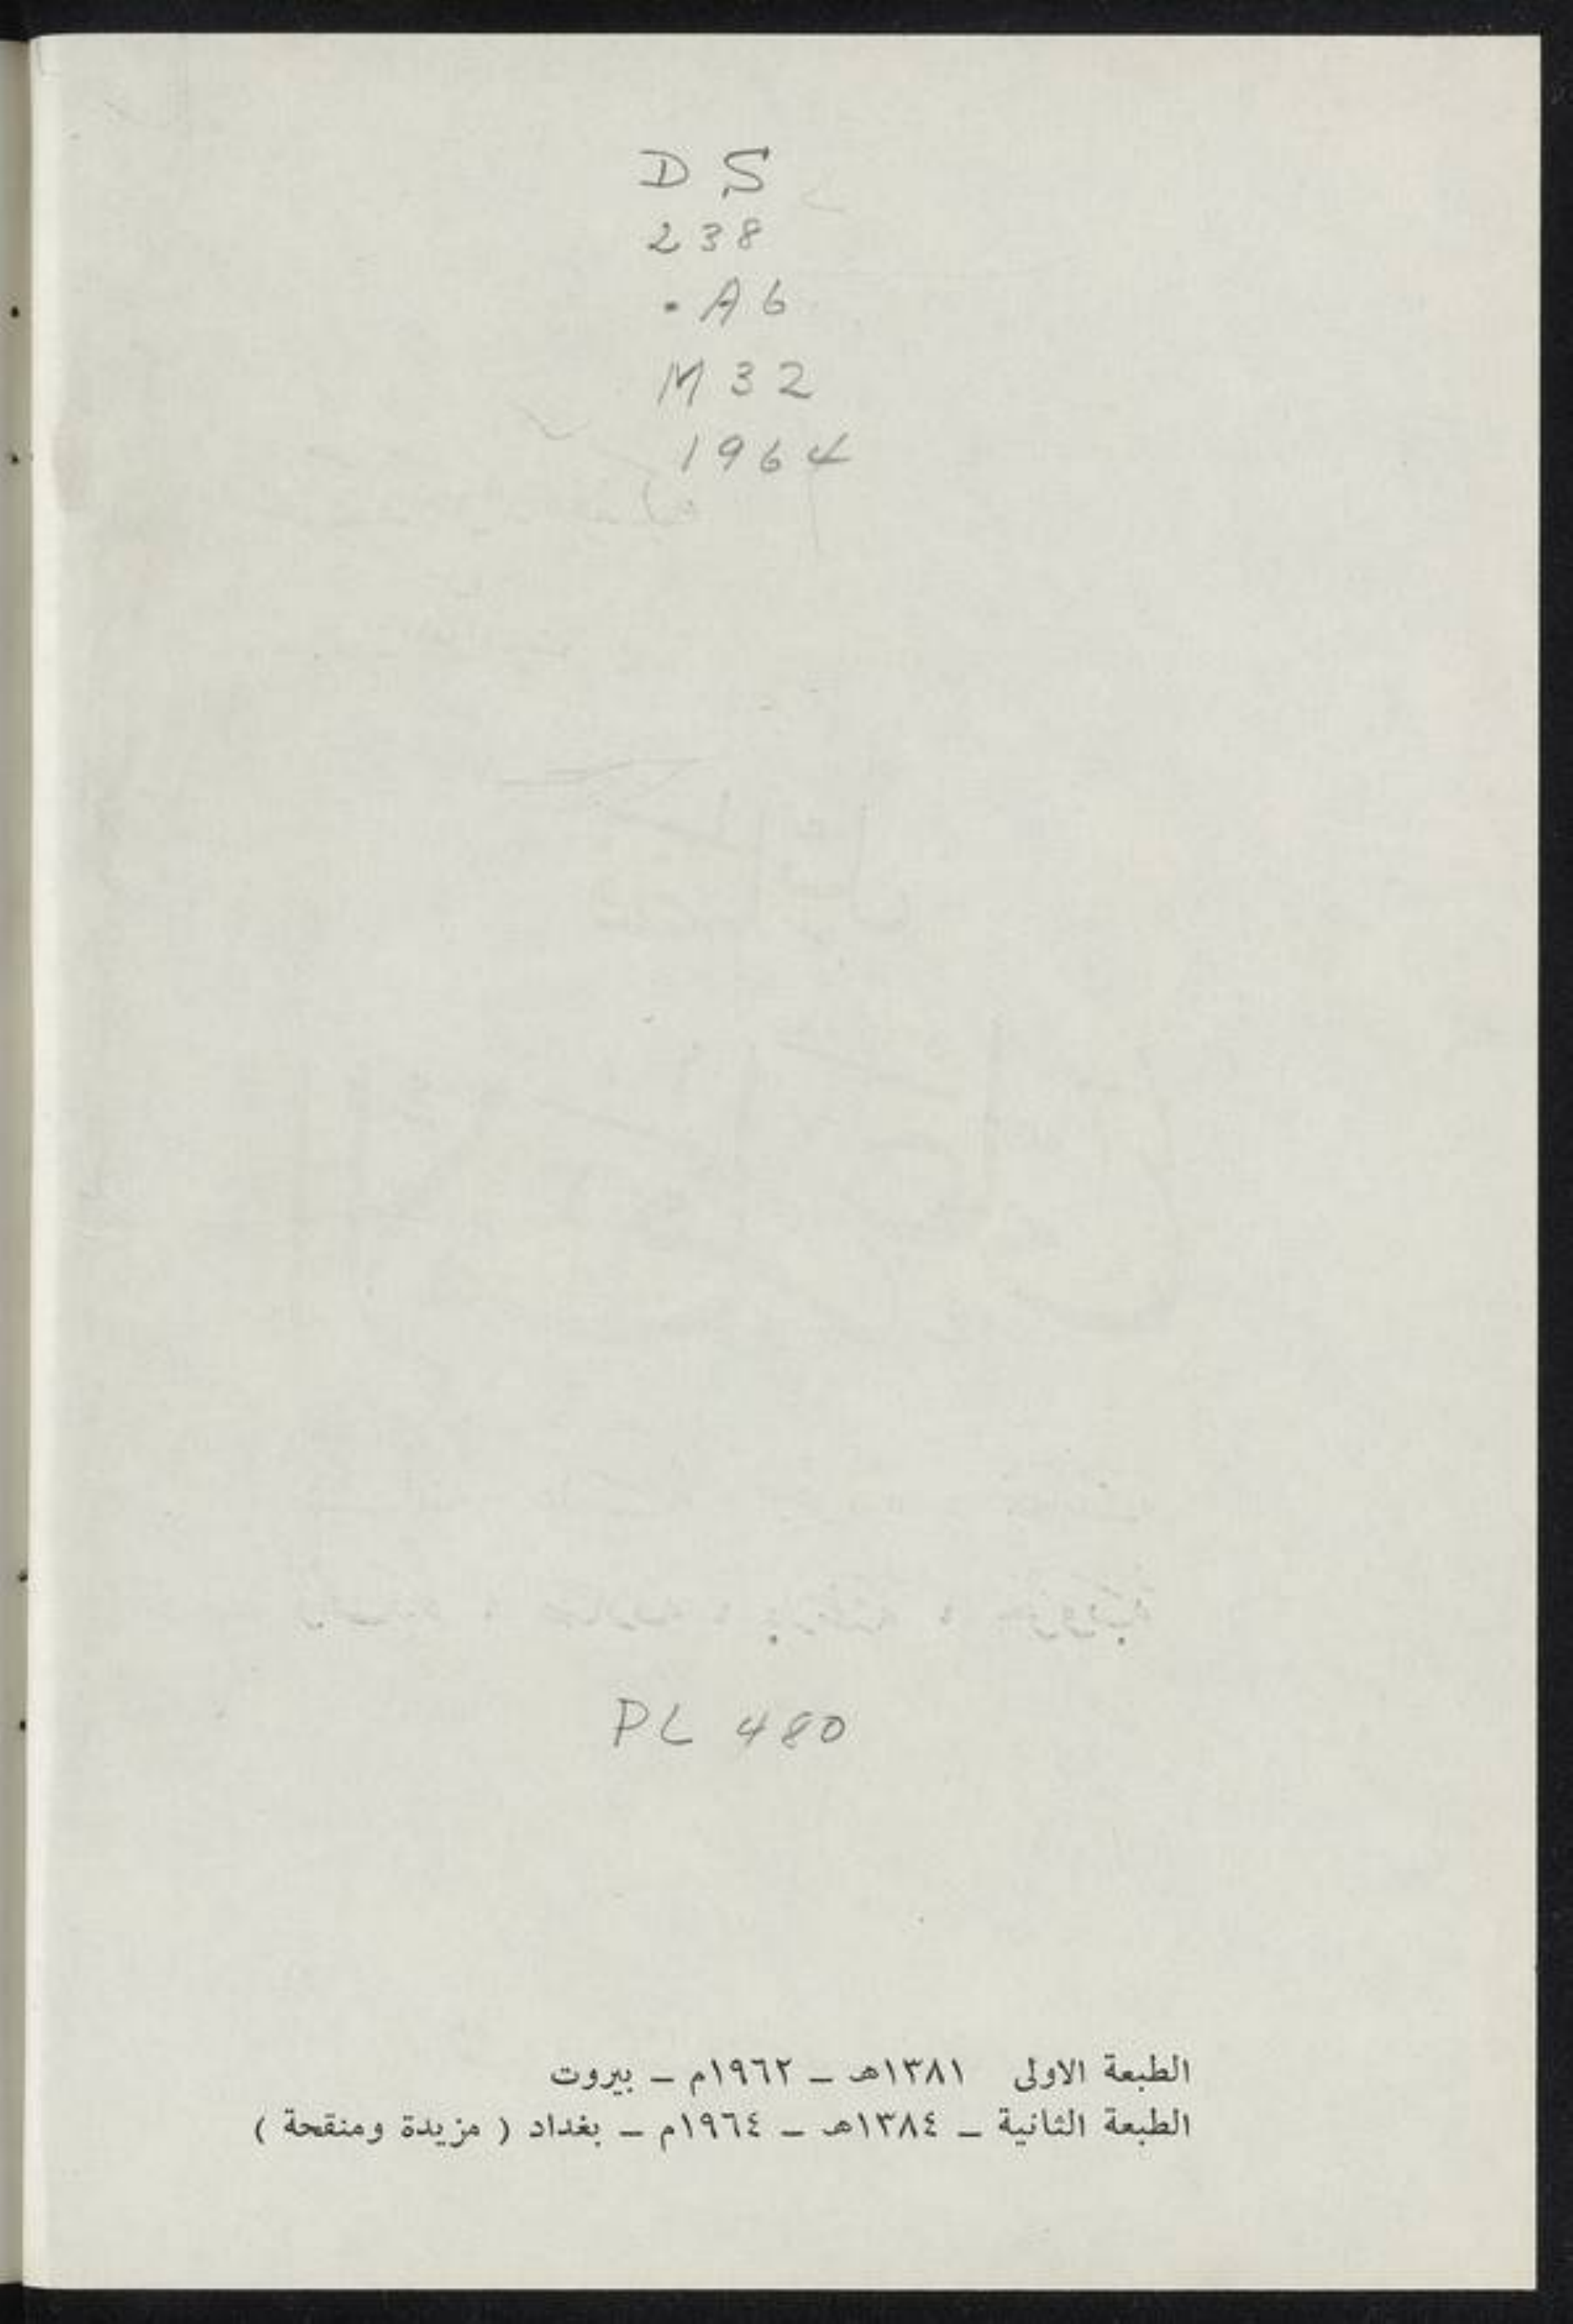 D S
238
.A6
M32
1964
PL 480
الطبعة الاولى ١٣٨١هـ – ١٩٦٢م – بيروت
الطبعة الثانية – ١٣٨٤هـ – ١٩٦٤م – بغداد ( مزيدة ومنقحة )